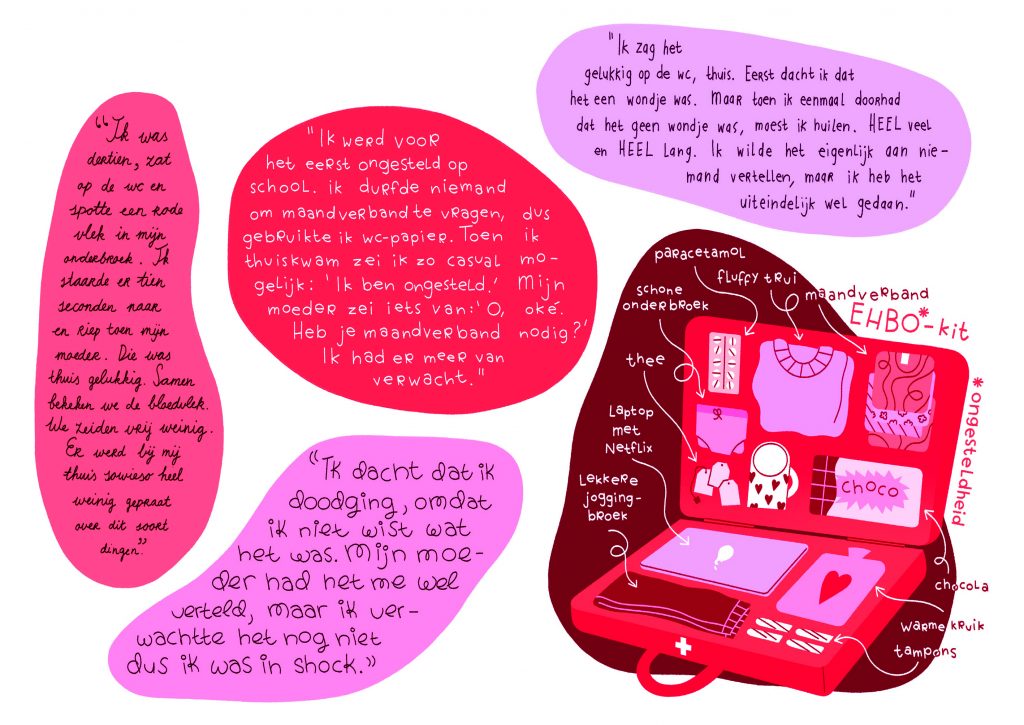 "Ik was
dertien, zat
op de wc en
spotte een rode
vlek in mijn
onderbroek. Ik
staarde er tien
seconden naar
en riep toen mijn
moeder. Die was
thuis gelukkig. Samen
bekeken we de bloedvlek.
We zeiden vrij weinig.
Er werd bij mij
thuis sowieso heel
weinig gepraat
over dit soort
dingen."
"Ik werd voor
het eerst ongesteld op
school. ik durfde niemand
om maandverband te vragen, dus
gebruikte ik wc-papier. Toen ik
thuiskwam zei ik zo casual mo-
gelijk: 'Ik ben ongesteld.' Mijn
moeder zei iets van: 'O, oké.
Heb je maandverband nodig?'
Ik had er meer van
verwacht."
"Ik zag het
gelukkig op de wc, thuis. Eerst dacht ik dat
het een wondje was. Maar toen ik eenmaal doorhad
dat het geen wondje was, moest ik huilen. HEEL veel
en HEEL lang. Ik wilde het eigenlijk aan nie-
mand vertellen, maar ik heb het
uiteindelijk wel gedaan."
"Ik dacht dat ik
doodging, omdat
ik niet wist wat
het was. Mijn moe-
der had het me wel
verteld, maar ik ver-
wachtte het nog niet
dus ik was in shock."
paracetamol
fluffy trui
maandverband
EHBO*-kit
*ongesteldheid
schone
onderbroek
thee
Laptop
met
Netflix
Lekkere
jogging-
broek
choco
chocola
warme kruik
tampons